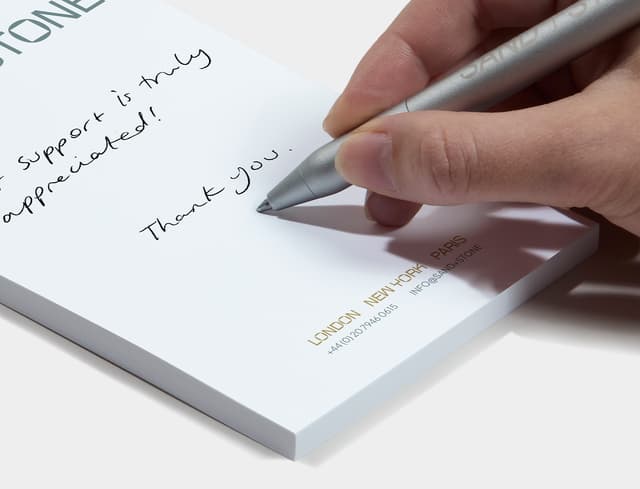 STONE
support is truly
appreciated!
Thank you.
SAND + STONE
LONDON NEW YORK PARIS
+44(0)20 7946 0615 INFO@SAND+STONE